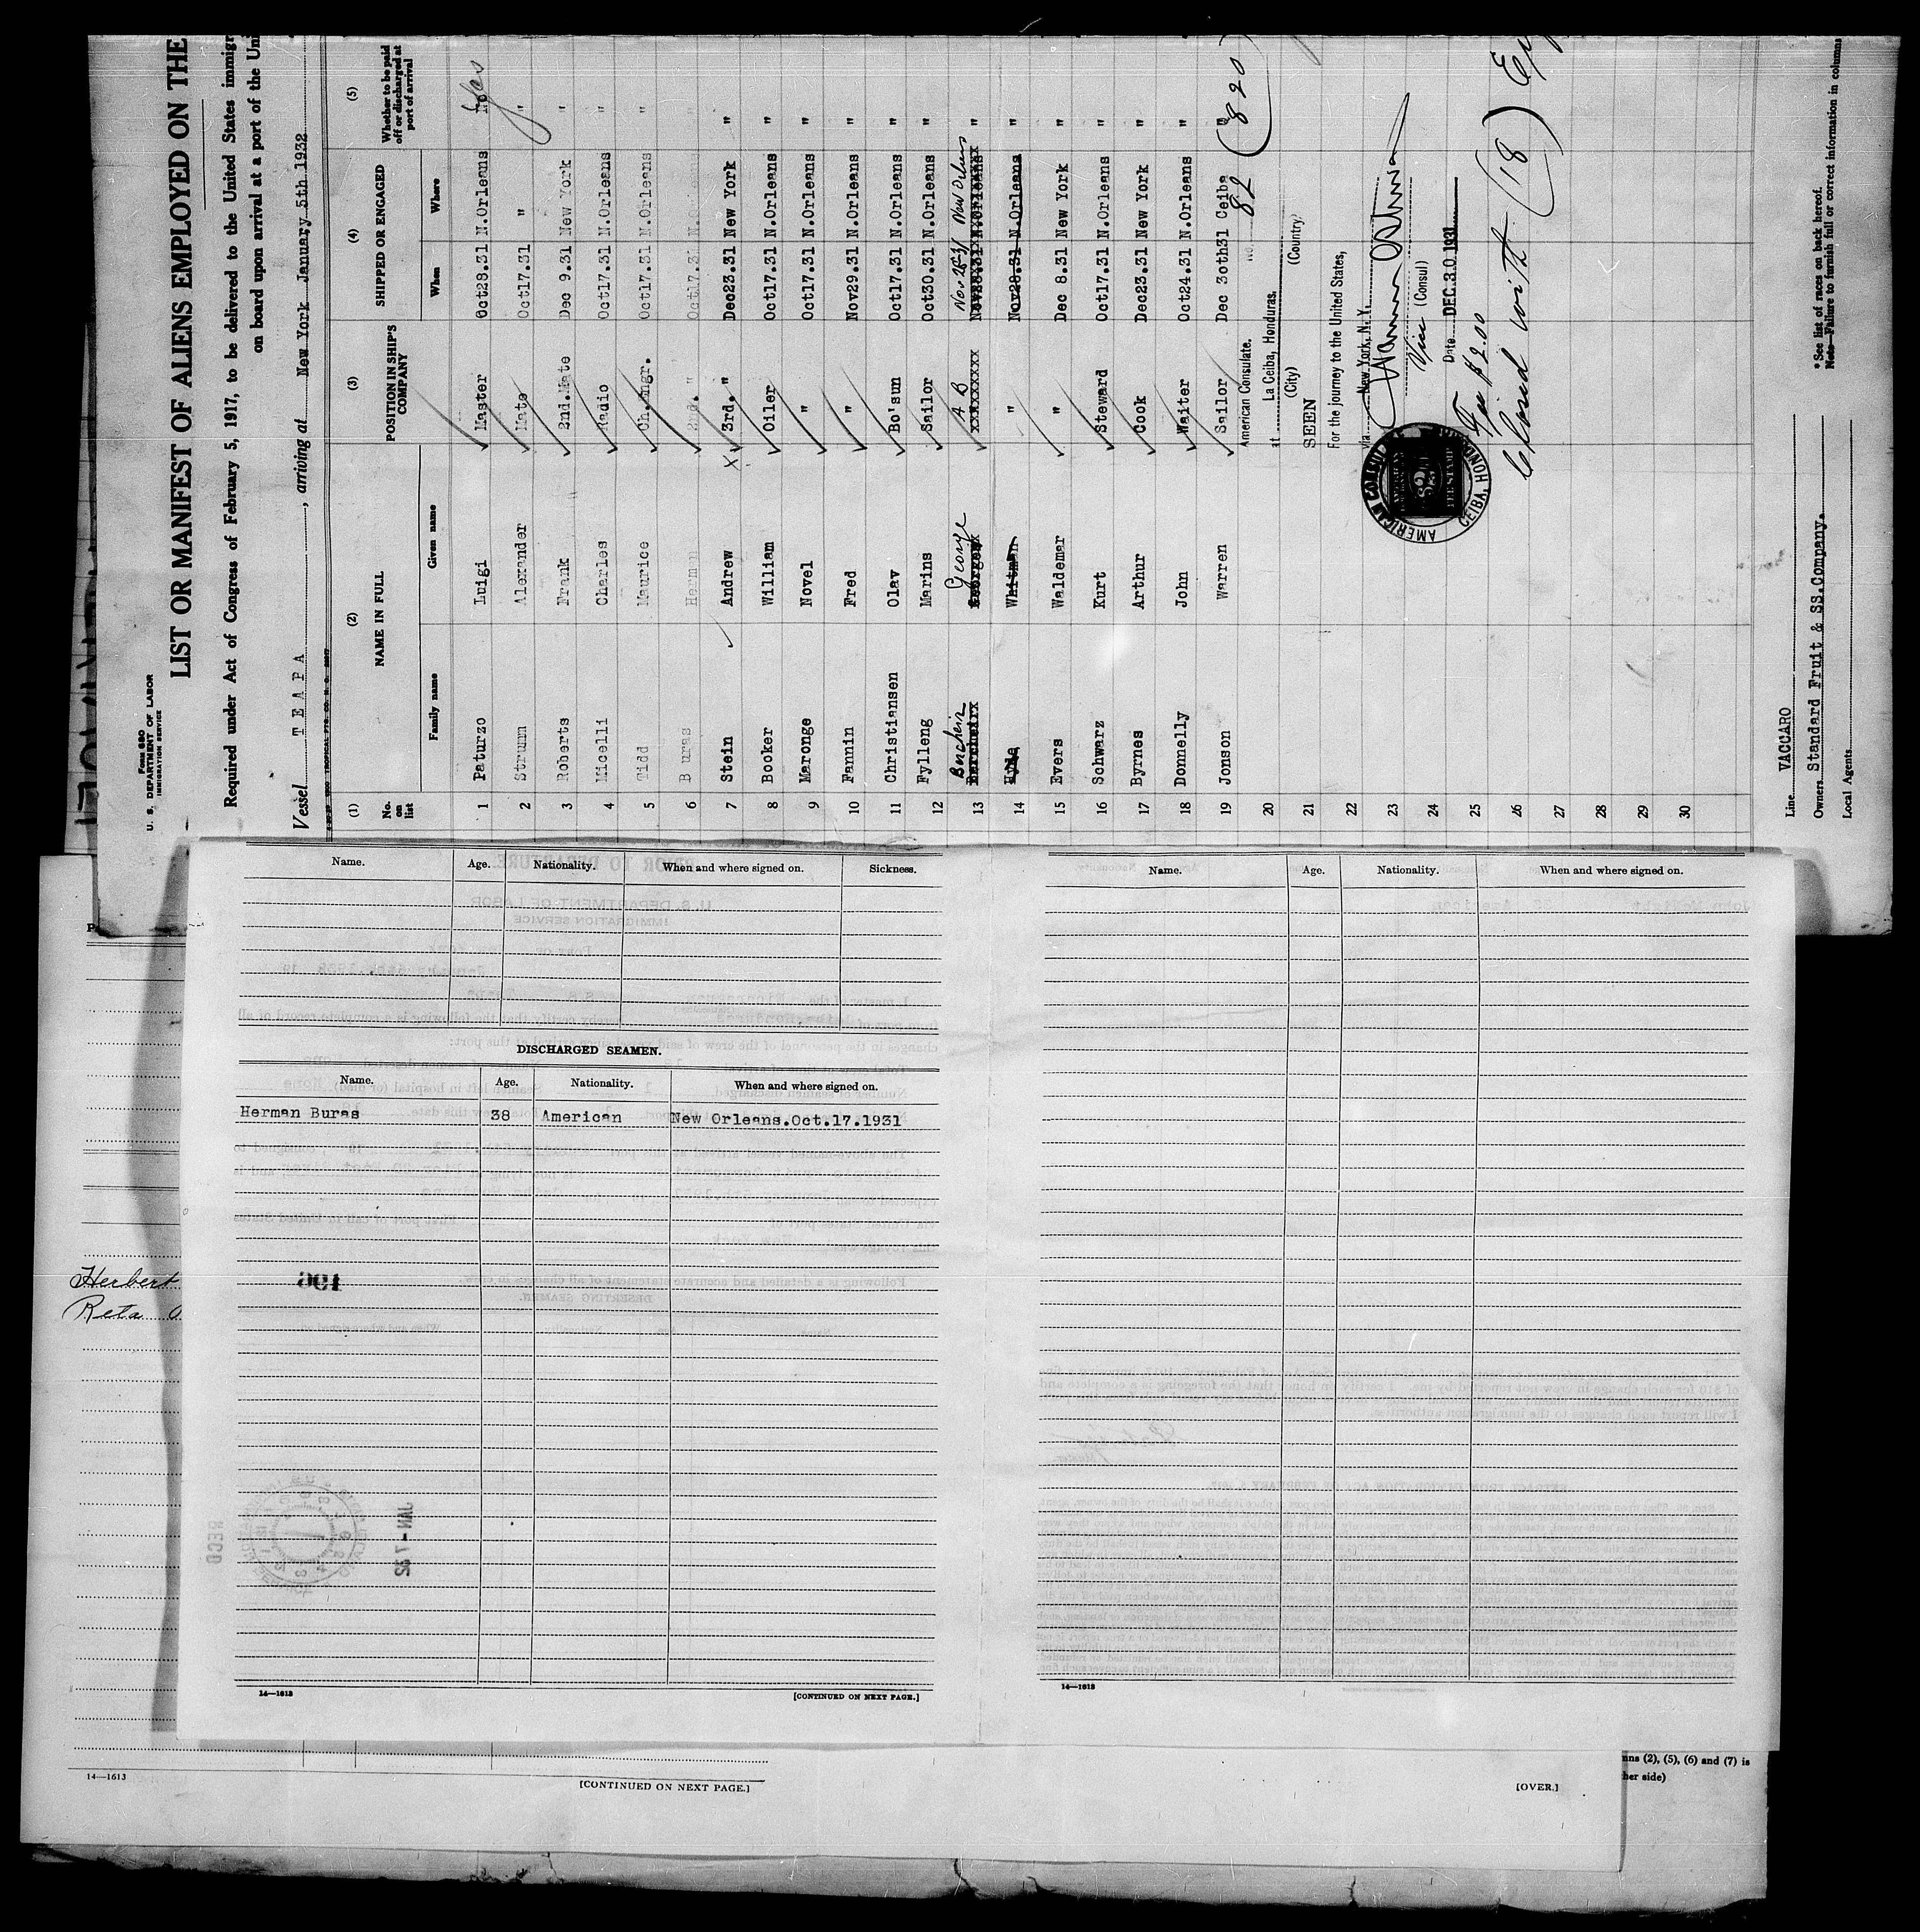 Form 680
U. S. DEPARTMENT OF LABOR
IMMIGRATION SERVICE
LIST OR MANIFEST OF ALIENS EMPLOYED ON THE
Required under Act of Congress of February 5, 1917, to be delivered to the United States immigr
on board upon arrival at a port of the Uni
Vessel TEAPA, arriving at New York January 5th 1932
(1) (2) (3) (4) (5)
No. on list NAME IN FULL POSITION IN SHIP'S COMPANY SHIPPED OR ENGAGED Whether to be paid off or discharged at port of arrival
Family name Given name When Where
1 Paturzo Luigi Master Oct28.31 N.Orleans Yes
2 Strunn Alexander Mate Oct17.31 " "
3 Roberts Frank 2nd.Mate Dec 9.31 New York "
4 Micelli Charles Radio Oct17.31 N.Orleans "
5 Tidd Maurice Ch.Engr. Oct17.31 N.Orleans "
6 Buras Herman 2nd. " Oct17.31 N.Orleans "
7 Stein Andrew X 3rd. " Dec23.31 New York "
8 Booker William Oiler Oct17.31 N.Orleans "
9 Maronge Novel " Oct17.31 N.Orleans "
10 Fannin Fred " Nov29.31 N.Orleans "
11 Christiansen Olav Bo'sun Oct17.31 N.Orleans "
12 Fylleng Marins Sailor Oct30.31 N.Orleans "
13 George A B Nov 28-31 New Orleans "
14 Hyde Whitman " Nov28.31 N.Orleans "
15 Evers Waldemar " Dec 8.31 New York "
16 Schwarz Kurt Steward Oct17.31 N.Orleans "
17 Byrnes Arthur Cook Dec23.31 New York "
18 Donnelly John Waiter Oct24.31 N.Orleans "
19 Jonson Warren Sailor Dec 30th31 Ceiba "
20 American Consulate. No. 82 (820)
at La Ceiba, Honduras.
21 (City) (Country)
SEEN
22 For the journey to the United States,
via New York, N. Y.
23
24 Vice (Consul)
Date DEC. 30 1931
25 Fee $2.00
26 Closed with (18)
27
28
29
30
AMERICAN CONSUL
CEIBA, HONDURAS
Line VACCARO
Owners Standard Fruit & SS.Company.
Local Agents
*See list of races on back hereof.
Note—Failure to furnish full or correct information in columns
Name. Age. Nationality. When and where signed on. Sickness.
DISCHARGED SEAMEN.
Name. Age. Nationality. When and where signed on.
Herman Buras 38 American New Orleans.Oct.17.1931
JAN - 7 32
RECD
14—1613
[CONTINUED ON NEXT PAGE.]
Name. Age. Nationality. When and where signed on.
14—1613
Herbert
Reta
14—1613
[CONTINUED ON NEXT PAGE.]
[OVER.]
mns (2), (5), (6) and (7) is
her side)